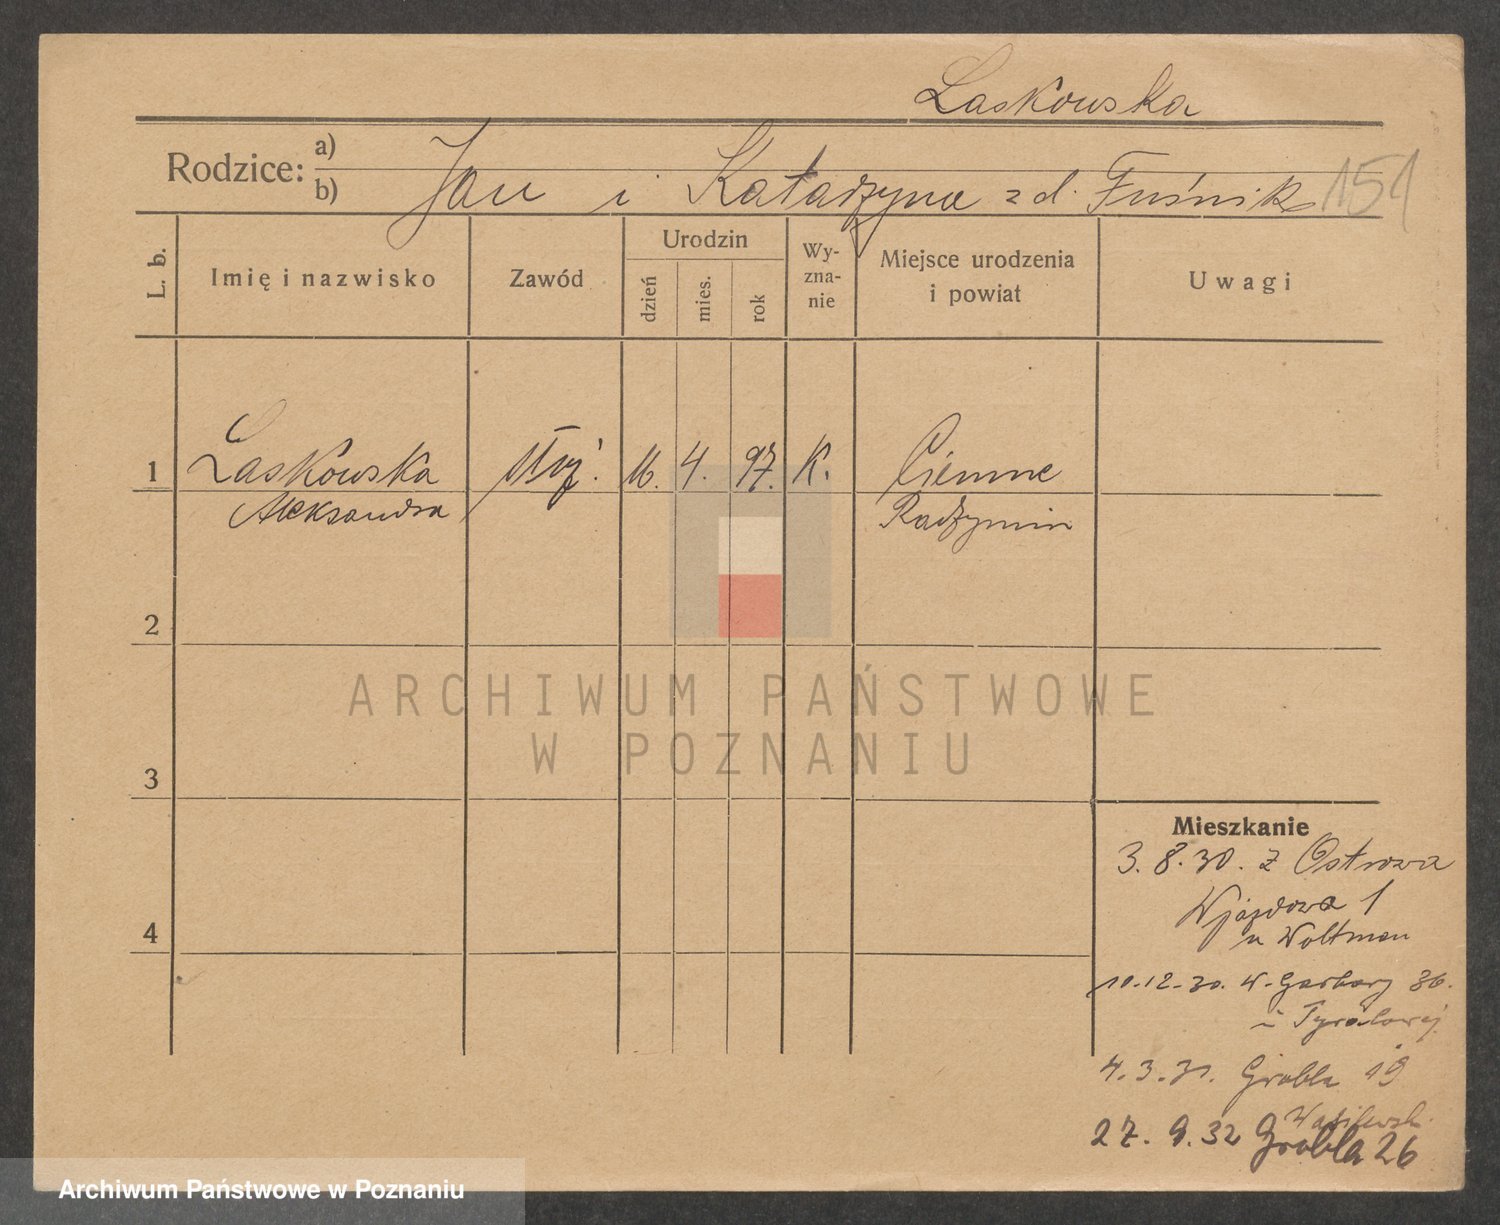 Laskowska
Rodzice: a)
b) Jan i Katarzyna z d. Fuśnik 151
L. b.
Imię i nazwisko
Zawód
Urodzin
dzień
mies.
rok
Wy-
zna-
nie
Miejsce urodzenia
i powiat
Uwagi
1 Laskowska służ. 16. 4. 97. K. Ciemne
Aleksandra Radzymin
2
3
4
ARCHIWUM PAŃSTWOWE
W POZNANIU
Mieszkanie
3. 8. 30. z Ostrowa
Wjazdowa 1
u Woltman
10.12.30. W. Garbary 36.
4.3.31. Grobla 19
27. 9. 32 Grobla 26
Archiwum Państwowe w Poznaniu